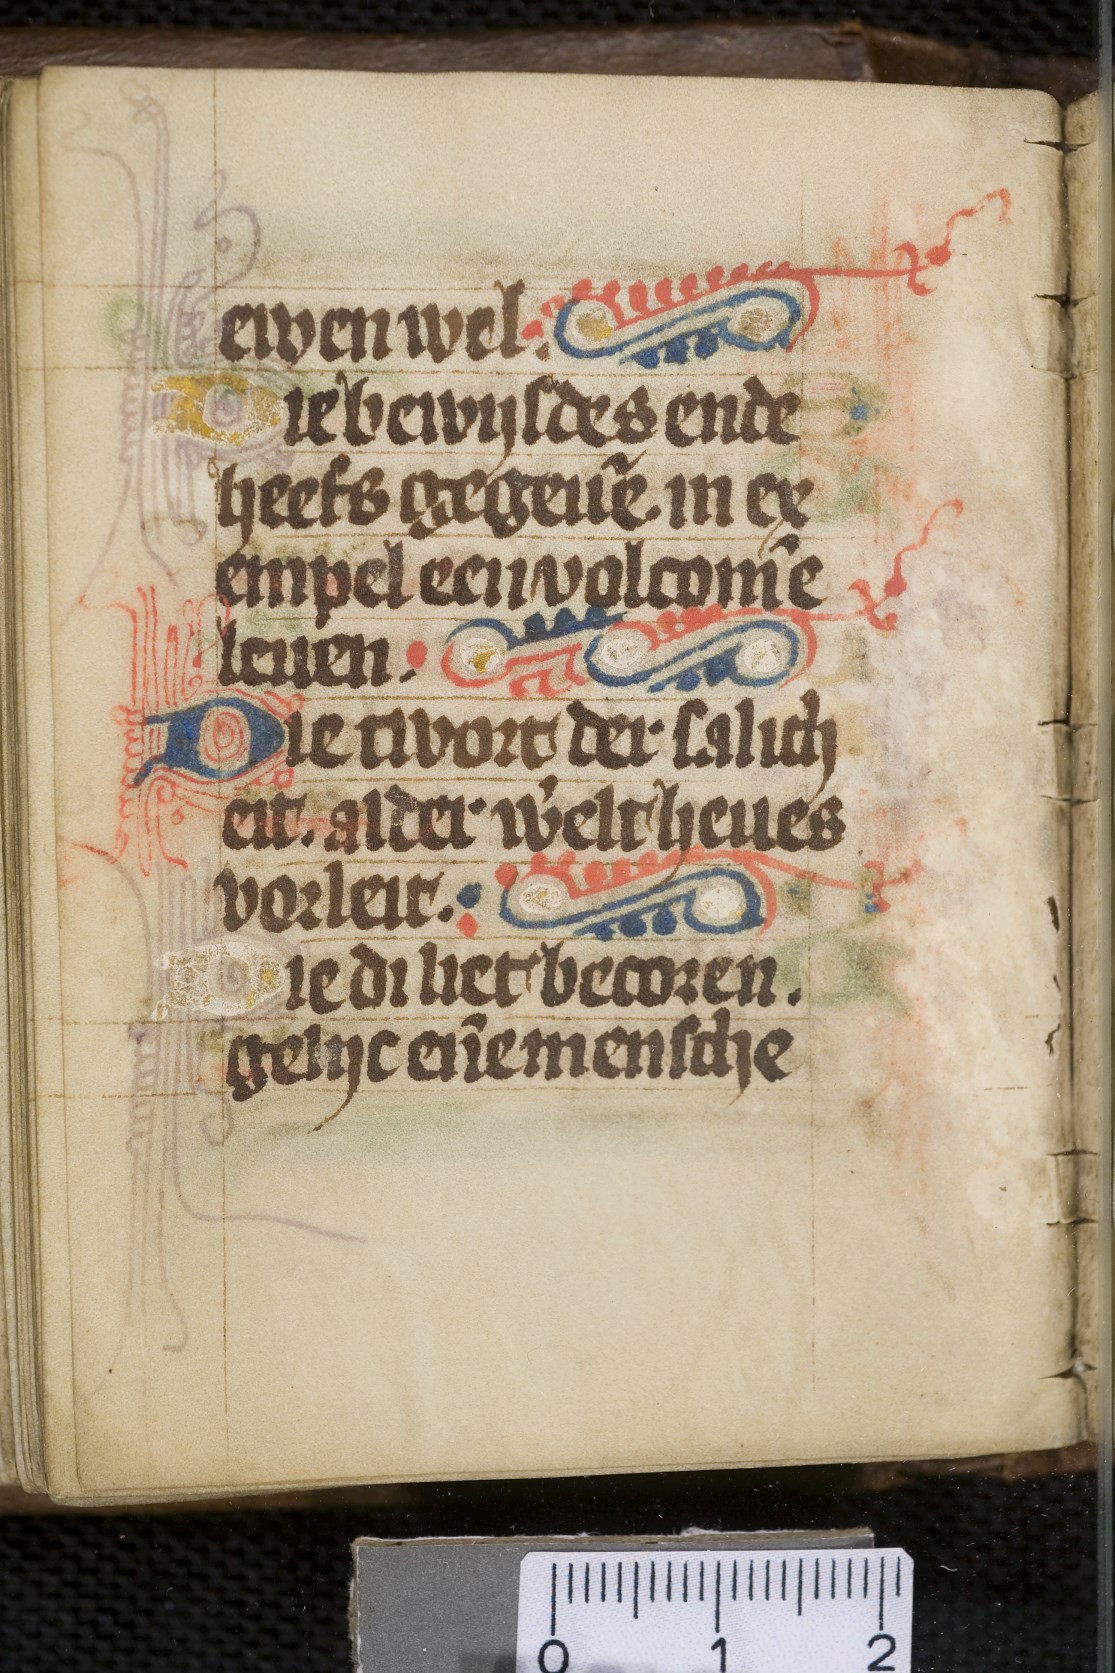 ewen wel.
Die bewijsdes ende
heefs gegeuē. in ex
empel een volcom̄e
leuen.
Die twort der salich
eit. alder w̓elt heues
vorleit.
Die di liet becoren.
gelijc en̄e mensche
0 1 2